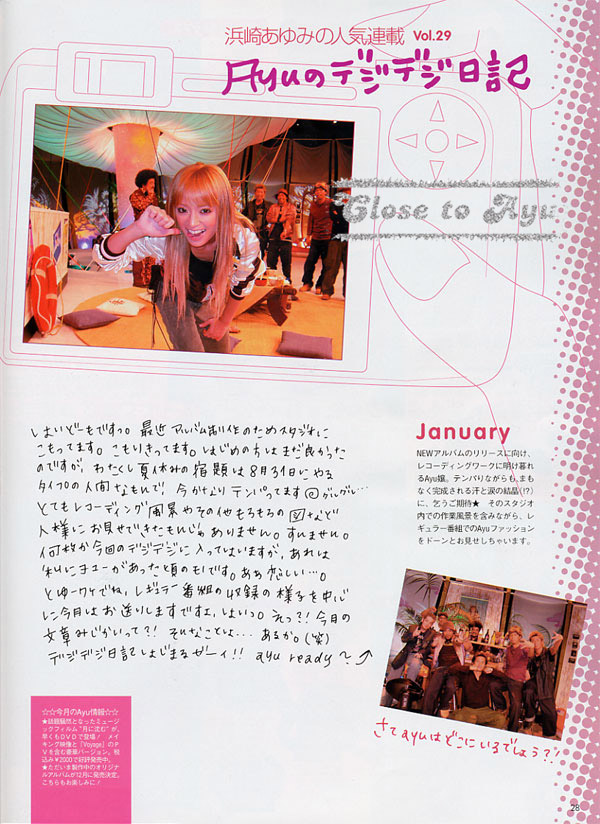 浜崎あゆみの人気連載 Vol.29
Ayuのデジデジ日記
Close to Ayu
はいどーもですっ。最近アルバム制作のためスタジオに
こもってます。こもりきってます。はじめのうちはまだ良かった
のですが、わたくし夏休みの宿題は8月31日にやる
タイプの人間なもんで、今かなりテンパってます
とてもレコーディング風景やその他もろもろの など
人様にお見せできたもんじゃありません。すいません。
何枚か今回のデジデジに入ってはいますが、あれは
私にチューがあった頃のモノです。ああ懐しい…。
とゆーワケでね、レギュラー番組の収録の様子を中心
に今月はお送りしますですよ、はいっ。えっ?!今月の
文章みじかいって?!そんなことは…あるか。(笑)
デジデジ日記はじまるぜーイ!! ayu ready〜?
January
NEWアルバムのリリースに向け、
レコーディングワークに明け暮れ
るAyu嬢。テンパりながらも、まも
なく完成される汗と涙の結晶(!?)
に、乞うご期待★ そのスタジオ
内での作業風景を含みながら、レ
ギュラー番組でのAyuファッション
をドーンとお見せしちゃいます。
さてayuはどこにいるでしょう?!
☆☆今月のAyu情報☆☆
★話題騒然となったミュージ
ックフィルム“月に沈む”が、
早くもDVDで登場! メイ
キング映像と「Voyage」のP
Vを含む豪華バージョン。税
込み¥2000で好評発売中。
★ただいま製作中のオリジナ
ルアルバムが12月に発売決定。
こちらもお楽しみに♪
28